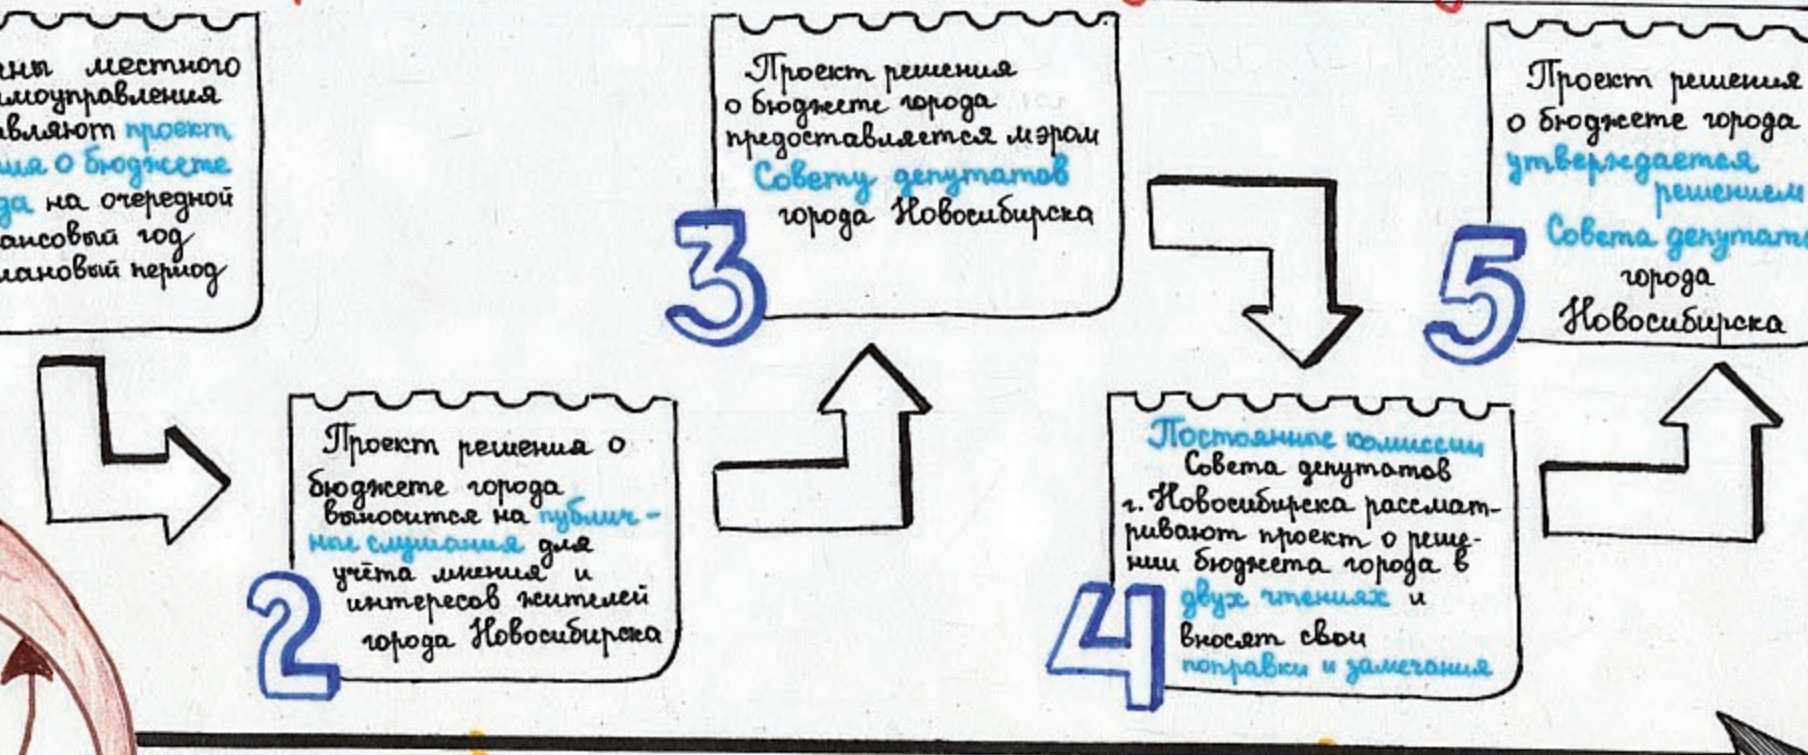 местного
проект
о бюджете
на очередной
год
период
2
Проект решения о
бюджете города
выносится на публич-
ные слушания для
учёта мнения и
интересов жителей
города Новосибирска
3
Проект решения
о бюджете города
предоставляется мэром
Совету депутатов
города Новосибирска
4
Постоянные комиссии
Совета депутатов
г. Новосибирска рассмат-
ривают проект о реше-
нии бюджета города в
двух чтениях и
вносят свои
поправки и замечания
5
Проект решения
о бюджете города
утверждается
решением
Совета
города
Новосибирска